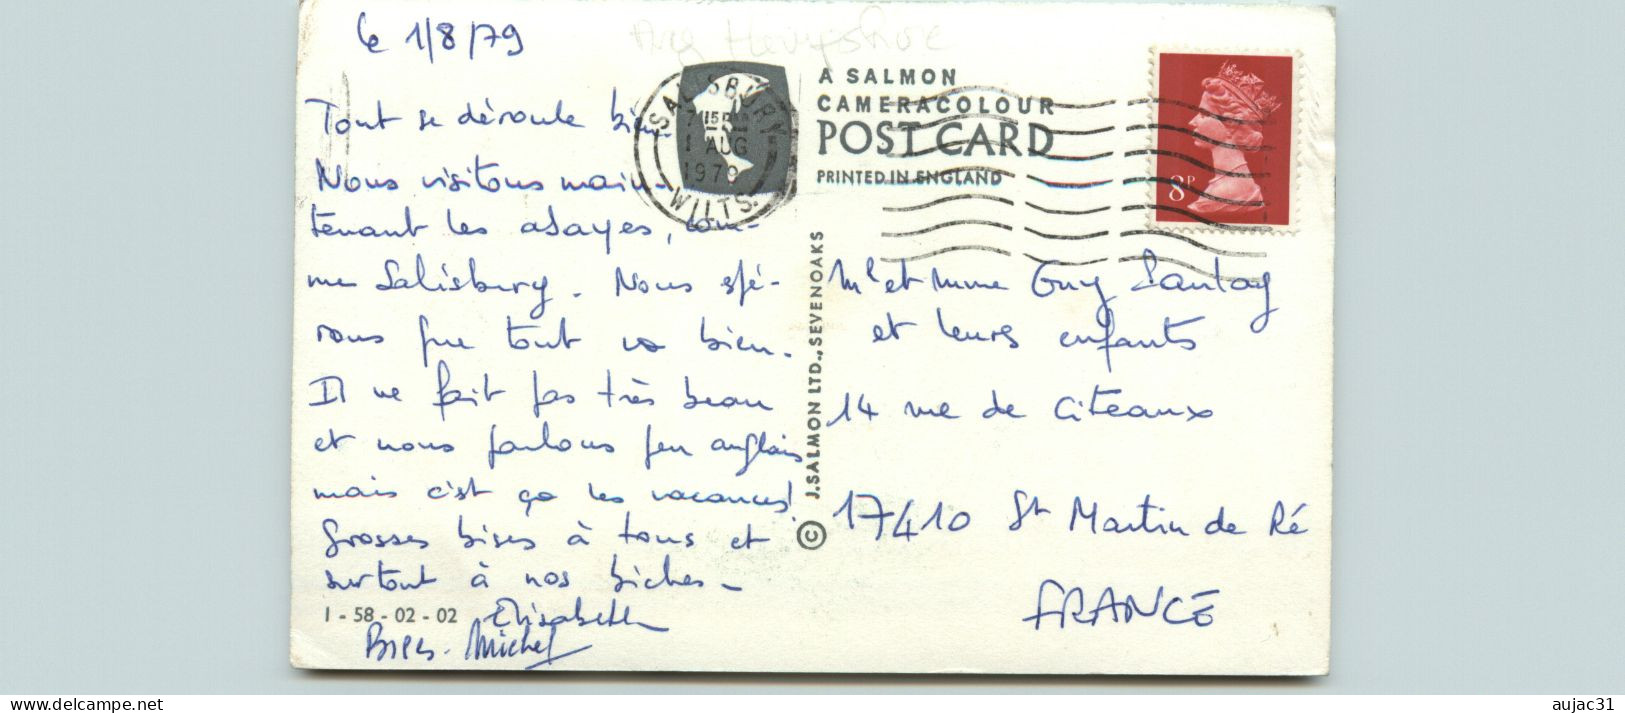 le 1/8/79
Tout se déroule bien.
Nous visitons main-
tenant les abayes, com-
me Salisbury. Nous espé-
rons que tout va bien.
Il ne fait pas très beau
et nous parlons peu anglais
mais c'est ça les vacances!
Grosses bises à tous et
surtout à nos biches-
Elisabeth
1 - 58 - 02 - 02
Bises. Michel
SALISBURY
715PM
1 AUG
1979
WILTS.
A SALMON
CAMERACOLOUR
POST CARD
PRINTED IN ENGLAND
© J.SALMON LTD., SEVENOAKS
8P
Mr et Mme Guy
et leurs enfants
14 rue de Citeaux
17410 St Martin de Ré
FRANCE
delcampe.net
aujac31